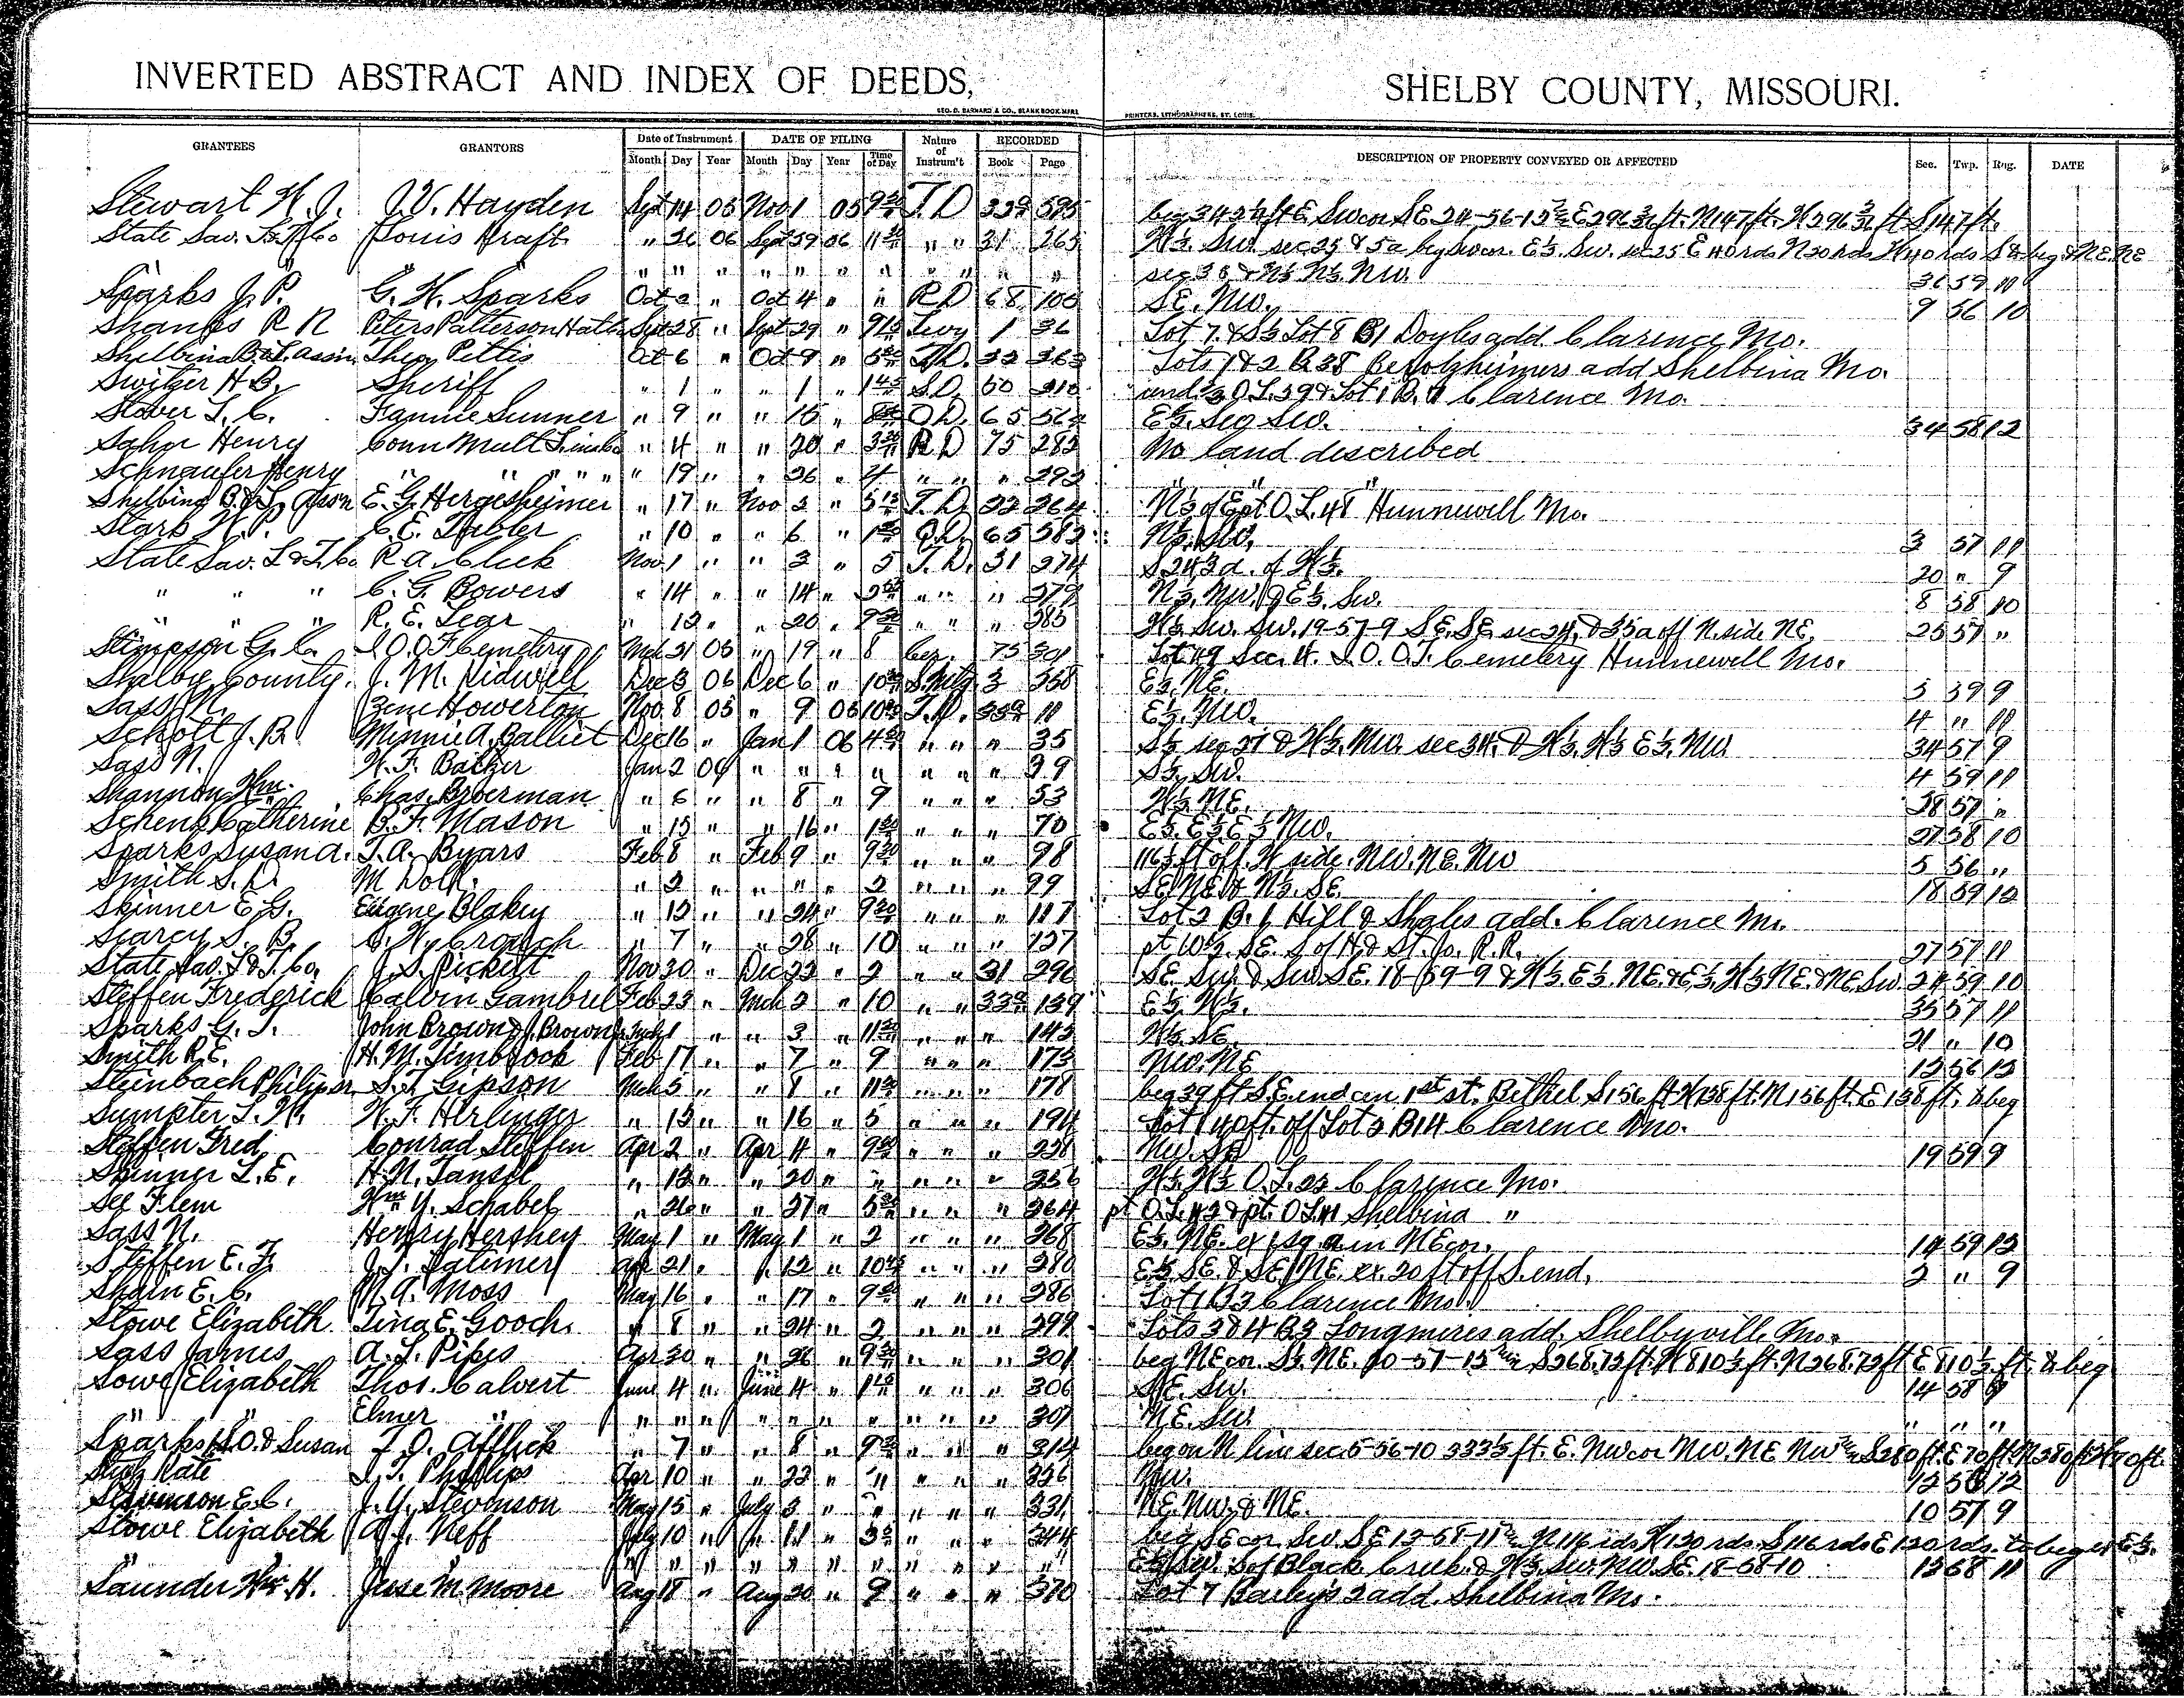 INVERTED ABSTRACT AND INDEX OF DEEDS, SHELBY COUNTY, MISSOURI.
GEO. D. BARNARD & CO., BLANK BOOK M'FRS PRINTERS, LITHOGRAPHERS, ST. LOUIS.
GRANTEES GRANTORS Date of Instrument DATE OF FILING Nature of Instrum't RECORDED DESCRIPTION OF PROPERTY CONVEYED OR AFFECTED Sec. Twp. Rng. DATE
Month Day Year Month Day Year Time of Day Book Page
Stewart W. J. J. V. Hayden Sept 14 05 Nov 1 05 9 30 T. D 595
State Sav. Louis Kraft " 26 06 Sept 29 06 11 " " 31 265 W½ Sw. sec 25
" " " " " " " " " " sec 36 & N½ N½ Nw. 36 59 10
Sparks J. P. G. W. Sparks Oct 2 " Oct 4 " " R D 68 100 SE. Nw. 9 56 10
Shanks R N Peters Patterson Sept 28 " Sept 29 " 9 15 Levy 1 36 Lot 7 & S½ Lot 8 B 1 Doyles add. Clarence Mo.
Shelbina B & L assn Theo Pettis Oct 6 " Oct 9 " T. D. 32 363 Lots 1 & 2 B 38 add Shelbina Mo.
Switzer H B. Sheriff " 1 " " 1 " 1 45 S D. 60 310 Clarence Mo.
Stover L. C. Fannie Sumner " 9 " " 15 " Q D. 65 562 E½. Sw. 34 58 12
Henry Conn Mult " 4 " " 20 " 3 R D 75 283 No land described
Schnaufer Henry " " " " " 19 " " 26 " 4 " " " 293 " "
Shelbina B. & L. assn E. G. Hergesheimer " 17 " Nov 2 " 5 15 T. D. 32 364 N½ of E pt O. L. 48 Hunnewell Mo.
Stark W. P. C. E. Tabler " 10 " " 6 " 1 Q D. 65 583 N½. Sw. 3 57 11
State Sav. L & T. Co. R. A. Click Nov. 1 " " 3 " 5 T. D. 31 274 S 243 a. of W½. 20 " 9
" " " C. G. Bowers " 14 " " 14 " " " " 279 N½. Nw. & E½. Sw. 8 58 10
" " " R. E. Lear " 12 " " 20 " 9 " " " 285 W½. Sw. Sw. 19-57-9 SE. SE sec 24, & 35 a off N. side NE. 25 57 "
Stimpson G. C. I O O F Cemetery Mch 31 05 " 19 " 8 Cer. 75 301 Lot 49 Sec. 4. I. O. O. F. Cemetery Hunnewell Mo.
Shelby County. J. M. Bidwell Dec 3 06 Dec 6 " 10 S. Mtg 3 358 E½. NE. 3 59 9
Sass N. Howerton Nov. 8 05 " 9 05 10 T. D. 11 E½. Nw. 4 " 11
Schott J. B. Minnie A. Balliet Dec 16 " Jan 1 06 4 " " " 35 S½ sec 27 & W½. Nw. sec 34. & W½. W½ E½. Nw. 34 57 9
Sass N. W. F. Baker Jan 2 06 " " " " " " " 39 S½. Sw. 4 59 11
Shannon Wm. Chas. Bierman " 6 " " 8 " 9 " " " 53 W½. NE. 57 "
Schenk Catherine B. F. Mason " 15 " " 16 " 1 " " " 70 E½. E½. E½ Nw. 27 58 10
Sparks Susan A. T. A. Byars Feb 8 " Feb 9 " 9 30 " " " 98 ft off W side. NW. NE. Nw 5 56 "
Smith S. D. M Dolk. " 2 " " " " 2 " " " 99 SE. NE & N½. SE. 18 59 12
Skinner E G. Eugene Blakey " 12 " " 24 " 9 " " " 117 Lot 2 B. 6 Hill & Shales add. Clarence Mo.
Searcy S. B. " 7 " " 28 " 10 " " " 127 pt W½. SE. S of H. & St. Jo. R. R. 27 57 11
State Sav. L & T. Co. J. S. Pickett Nov 20 " Dec 22 " 2 " " 31 296 SE. Sw. & Sw. SE. 18-59-9 & W½. E½. NE. & E½. W½ NE. & NE. Sw. 24 59 10
Steffen Frederick Calvin Gambrel Feb 23 " Mch 2 " 10 " " 139 E½. W½. 35 57 11
Sparks G. T. John Brown Mch 1 " " 3 " 11 " " " 143 W½. SE. 21 " 10
Smith R. E. H. M. Timbrook Feb 17 " " 7 " 9 " " " 173 NW. NE 12 56 12
Steinbach Philip S. T. Gipson Mch 5 " " 8 " 11 " " " 178 beg 39 ft S. E. end 1st st. Bethel S 156 ft W 138 ft. N 156 ft. E 138 ft. to beg
Sumpter L. W. W. F. Herlinger " 15 " " 16 " 5 " " " 194 Lot 1 40 ft. off Lot 2 B 14 Clarence Mo.
Steffen Fred. Conrad Steffen Apr 2 " Apr 4 " 9 " " " 238 Nw. 19 59 9
Skinner L. E. H. N. Tansil " 12 " " 20 " " " " " 256 W½. W½ O. L. 22 Clarence Mo.
See Flem Wm Y. Schabel " 26 " " 27 " 5 " " " 264 pt O. L. 42 & pt. O L 41 Shelbina "
Sass N. Henry Hershey May 1 " May 1 " 2 " " " 268 E½. NE. ex 1 sq. a. in NE cor. 14 59 12
Steffen E. F. J. T. Latimer Apr 21 " " 12 " 10 45 " " " 280 E½ SE. & SE NE. ex. 20 ft off S. end. 2 " 9
Shain E. C. M. A. Moss May 16 " " 17 " 9 " " " 286 Clarence Mo.
Stowe Elizabeth Tina E. Gooch. " 8 " " 24 " 2 " " " 299 Lots 3 & 4 B 3 Longmires add. Shelbyville Mo.
Sass James A. L. Pipes Apr 30 " " 26 " 9 30 " " " 301 beg NE cor. S½. NE. 10-57-15 S 268.73 ft. W 810½ ft. N 268.73 ft E 810½ ft. to beg
Stowe Elizabeth Thos. Calvert June 4 " June 4 " 1 15 " " " 306 SE. Sw. 14 58
" " Elmer " " " " " " " " " " " 307 NE. Sw. " " "
Sparks H. O. & Susan F. O. Afflick " 7 " " 8 " 9 " " " 314 beg on N line sec. 5-56-10 333⅓ ft. E. Nw cor Nw. NE Nw
Kate Phillips Apr 10 " " 22 " " " " " 326 Nw. 12 12
Stevenson E. C. J. Y. Stevenson May 15 " July 3 " " " " " 331 NE. Nw. & NE. 10 57 9
Stowe Elizabeth A. J. Neff July 10 " " 11 " " " " 344 beg SE cor. Sw SE 13-58-11 N 116 rds W 130 rds. S 116 rds E 120 rds. to beg & E½.
" " " " " " " " " " " Sw. S of Black Creek. & W½. Sw. Nw. SE. 18-58-10 13 58 11
Saunder Wm. H. Jesse M. Moore Aug 18 " Aug 20 " 9 " " " 370 Lot 7 Bailey's 2 add. Shelbina Mo.